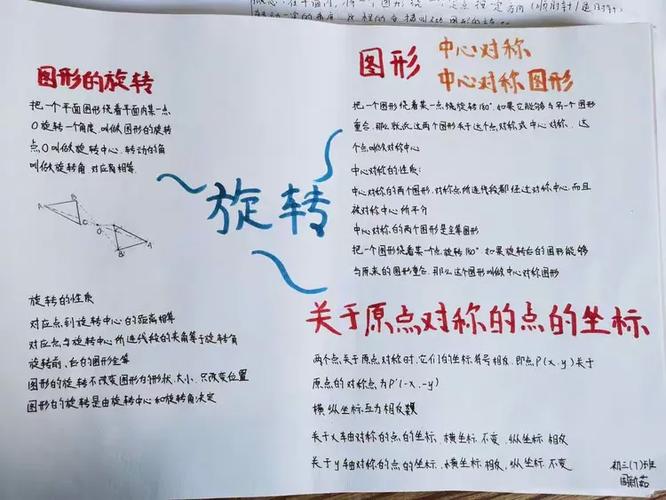 图形的旋转
把一个平面图形绕着平面内某一点
O旋转一个角度,叫做图形的旋转
点O叫做旋转中心,转动的角
叫做旋转角,对应角相等
A
B
O
B'
A
旋转的性质
对应点到旋转中心的距离相等
对应点与旋转中心所连线段的夹角等于旋转角
旋转前、后的图形全等
图形的旋转不改变图形的形状、大小,只改变位置
图形的旋转是由旋转中心和旋转角决定
旋转
图形
中心对称
中心对称图形
把一个图形绕着某一点旋转180°,如果它能够与另一个图形
重合,那么就说这两个图形关于这个点对称或中心对称,这
个点叫做对称中心
中心对称的性质:
中心对称的两个图形,对称点所连线段都经过对称中心,而且
被对称中心所平分
中心对称的两个图形是全等图形
把一个图形绕着某一个点旋转180°,如果旋转后的图形能够
与原来的图形重合,那么这个图形叫做中心对称图形
关于原点对称的点的坐标
两个点关于原点对称时,它们的坐标符号相反,即点P(x,y)关于
原点的对称点为P'(-x,-y)
横纵坐标互为相反数
关于x轴对称的点的坐标,横坐标不变,纵坐标相反
关于y轴对称的点的坐标,横坐标相反,纵坐标不变
初三(7)班